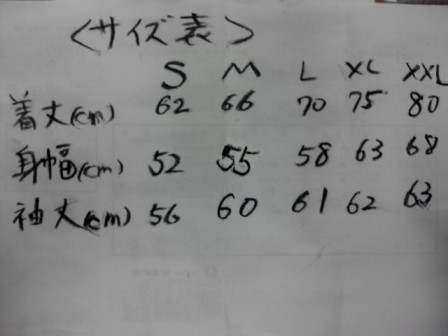 ＜サイズ表＞
S M L XL XXL
着丈(cm) 62 66 70 75 80
身幅(cm) 52 55 58 63 68
袖丈(cm) 56 60 61 62 63